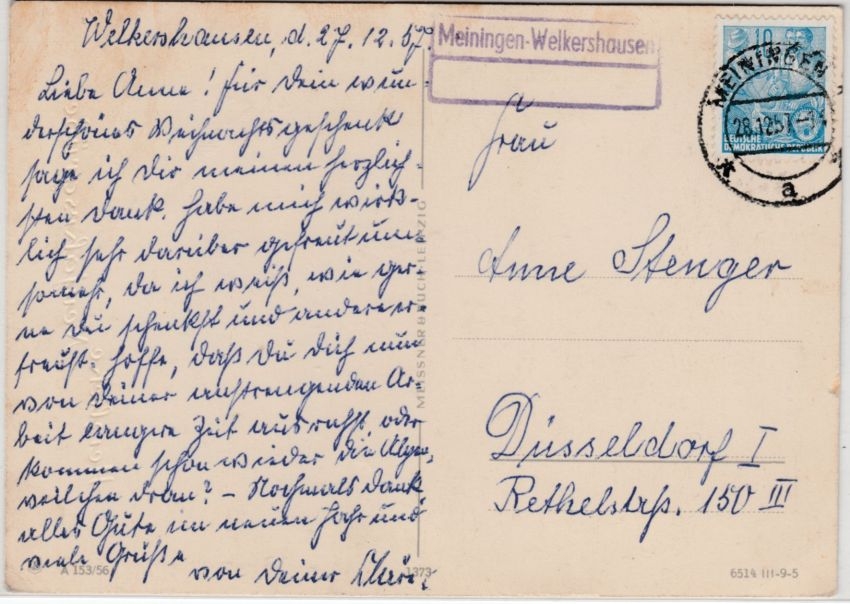 Welkershausen, d. 27.12.57.
Liebe Anne! Für Dein wun-
derschönes Weihnachtsgeschenk
sage ich Dir meinen herzlich-
sten Dank. Habe mich wirk-
lich sehr darüber gefreut um
somehr, da ich weiß, wie ger-
ne Du schenkst und andere er-
freust. Hoffe, daß Du Dich nun
von Deiner anstrengenden Ar-
beit längere Zeit ausruhst, oder
kommen schon wieder die
weilchen dran? - Nochmals Dank
alles Gute im neuen Jahr und
viele Grüße
von Deiner
A 153/56
1373
MEISSNER & BUCH LEIPZIG
Meiningen-Welkershausen
10
DEUTSCHE
DEMOKRATISCHE REPUBLIK
MEININGEN 1
28.12.57
* a
Frau
Anne Stenger
Düsseldorf I
Rethelstrß. 150 III
6514 III-9-5